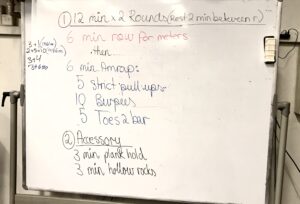 ① 12 min x 2 Rounds (Rest 2 min between r)
6 min row for meters
then
6 min Amrap:
5 Strict pull ups
10 Burpees
5 Toes 2 bar
② Accessory
3 min plank hold
3 min hollow rocks